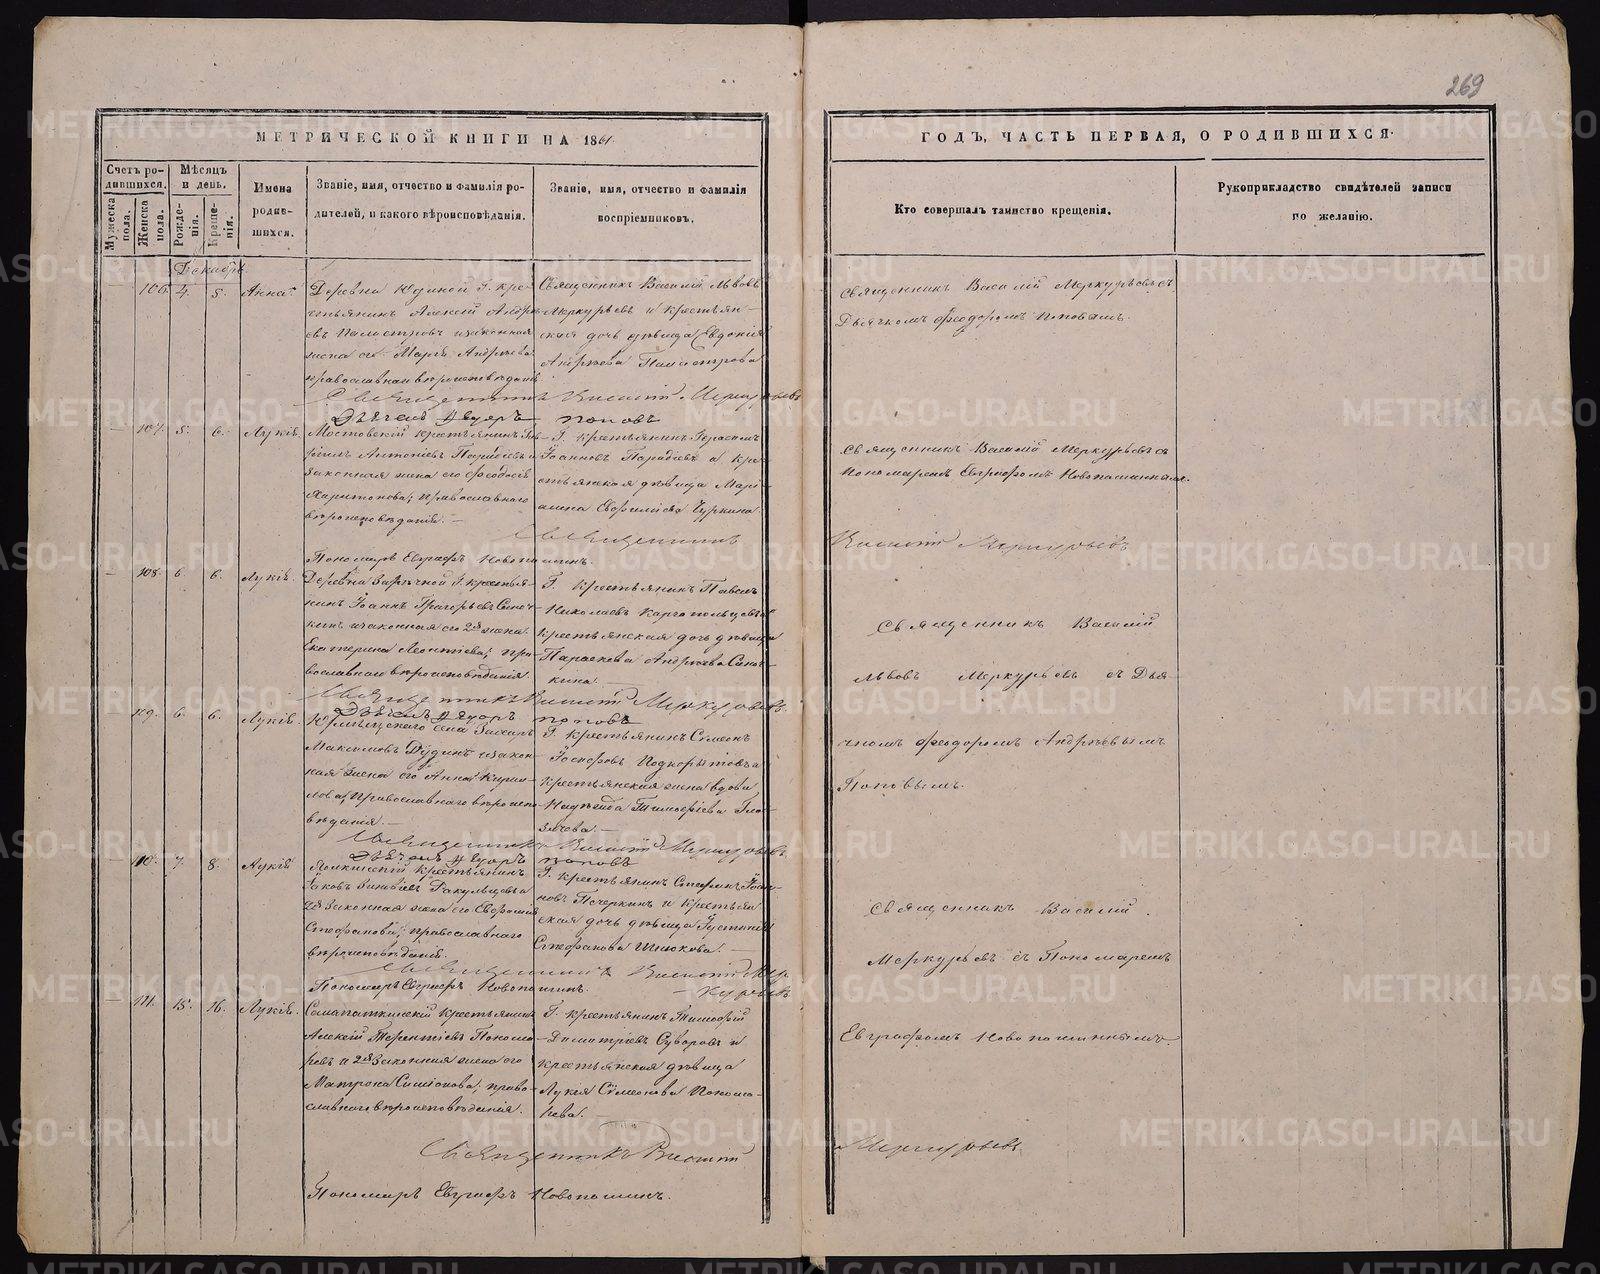 269
МЕТРИЧЕСКОЙ КНИГИ НА 1861.
ГОДЪ, ЧАСТЬ ПЕРВАЯ, О РОДИВШИХСЯ.
Счетъ родившихся.
Мужеска пола.
Женска пола.
Мѣсяцъ и день.
Рожденія.
Крещенія.
Имена родившихся.
Званіе, имя, отчество и фамилія родителей, и какого вѣроисповѣданія.
Званіе, имя, отчество и фамилія воспріемниковъ.
Кто совершалъ таинство крещенія.
Рукоприкладство свидѣтелей записи по желанію.
Декабрь
106. 4. 5. Анна.
Деревни Юдиной Г. кре-
стьянинъ Алексій Андре-
евъ Паластровъ и законная
жена его Марія Андреева
православнаго вѣроисповѣданія
Священникъ Василій Львовъ
Меркурьевъ и крестьян-
ская дочь дѣвица Евдокія
Андреева
Священникъ Василій Меркурьевъ съ
Дьячкомъ Феодоромъ Поповымъ.
Священникъ Василій Меркурьевъ
Дьячекъ Ѳедоръ Поповъ
107. 5. 6. Лукія.
Мостовскій крестьянинъ
Антоніевъ
законная жена его Феодосія
Харитонова; православнаго
вѣроисповѣданія.
Г. крестьянинъ Герасимъ
Іоанновъ
крестьянская дѣвица Марі-
амна Евфиміева Чуркина.
Священникъ Василій Меркурьевъ съ
Пономаремъ Евграфомъ Новопашинымъ.
Священникъ Василій Меркурьевъ
Пономарь Евграфъ Новопашинъ.
108. 6. 6. Лукія.
Деревни Заречной Г. крестья-
нинъ Іоаннъ Григорьевъ
и законная его 2я жена
Екатерина Леонтіева; пра-
вославнаго вѣроисповѣданія
Г. крестьянинъ Павелъ
Николаевъ Каргопольцовъ и
крестьянская дочь дѣвица
Параскева Андреева
Священникъ Василій
Львовъ Меркурьевъ съ Дья-
чкомъ Феодоромъ Андреевымъ
Поповымъ.
Священникъ Василій Меркурьевъ.
Дьячекъ Ѳедоръ Поповъ
109. 6. 6. Лукія.
села Захаръ
Максимовъ Дудинъ и закон-
ная жена его Анна Кирил-
лова; православнаго вѣроиспо-
вѣданія.
Г. крестьянинъ Симеонъ
Іосифовъ Подкорытовъ и
крестьянская жена вдова
Надежда Тимофіева
Священникъ Василій Меркурьевъ.
Дьячекъ Ѳедоръ Поповъ
110. 7. 8. Лукія
крестьянинъ
Іаковъ Зиновіевъ Ракульцевъ и
2я законная жена его Евфросинія
Стефанова; православнаго
вѣроисповѣданія.
Г. крестьянинъ Стефанъ Іоан-
новъ Печеркинъ и крестьян-
ская дочь дѣвица Іустинія
Стефанова Шнюкова.
Священникъ Василій
Меркурьевъ съ Пономаремъ
Евграфомъ Новопашинымъ.
Священникъ Василій Меркурьевъ
Пономарь Евграфъ Новопашинъ.
111. 15. 16. Лукія.
крестьянинъ
Алексій Терентіевъ Понома-
ревъ и 2я законная жена его
Матрона Симіонова; право-
славнаго вѣроисповѣданія.
Г. крестьянинъ Тимофій
Димитріевъ Суворовъ и
крестьянская дѣвица
Лукія Симеонова Понома-
рева.
Священникъ Василій Меркурьевъ
Пономарь Евграфъ Новопашинъ.
METRIKI.GASO-URAL.RU